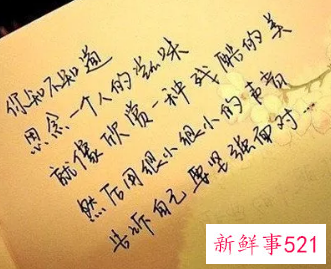 你知不知道
思念一个人的滋味
就像欣赏一种残酷的美
然后用很小很小的声音
告诉自己要坚强面对
新鲜事521